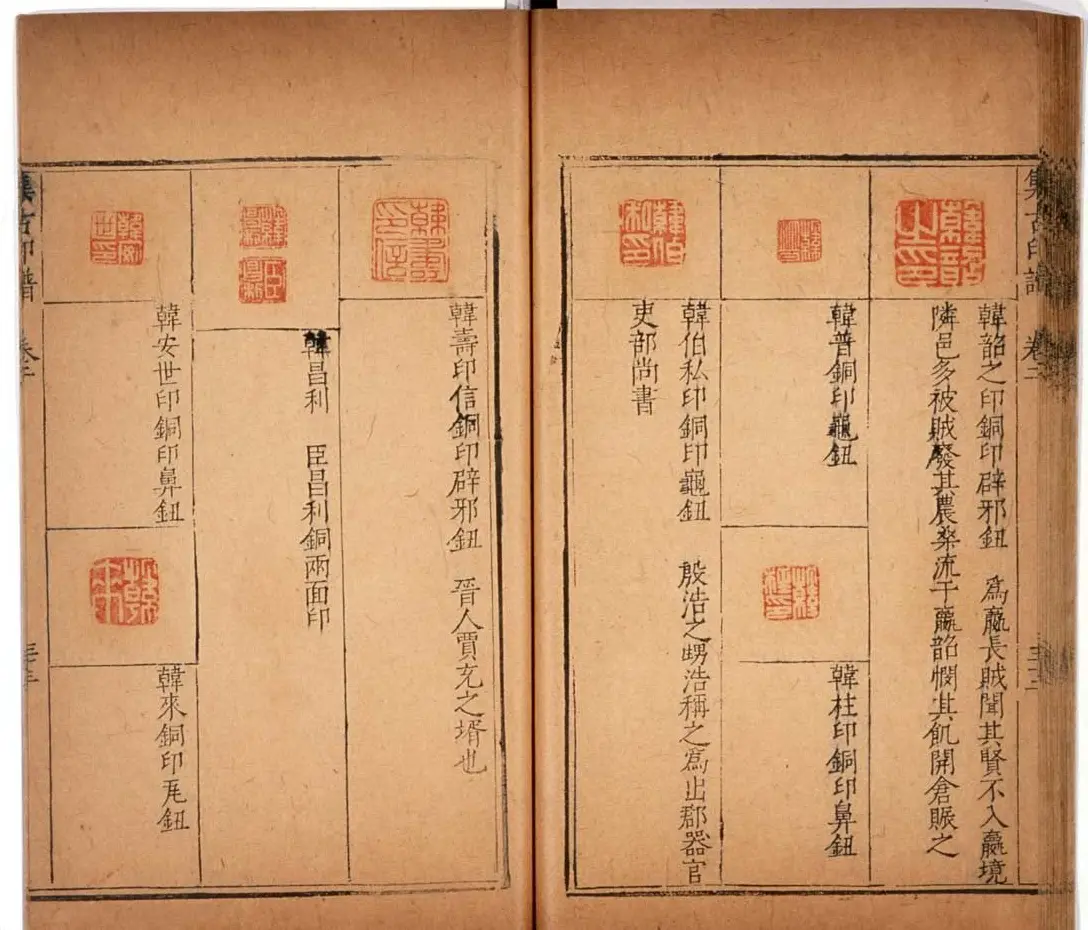 韓韶之印銅印辟邪鈕　爲嬴長賊聞其賢不入嬴境
隣邑多被賊廢其農桒流于嬴韶憫其飢開倉賑之
韓普銅印龜鈕
韓柱印銅印鼻鈕
韓伯私印銅印龜鈕　殷浩之甥浩稱之爲出郡器官
吏部尚書
韓壽印信銅印辟邪鈕　晉人賈充之壻也
韓昌利　臣昌利銅兩面印
韓安世印銅印鼻鈕
韓來銅印瓦鈕
集古印譜